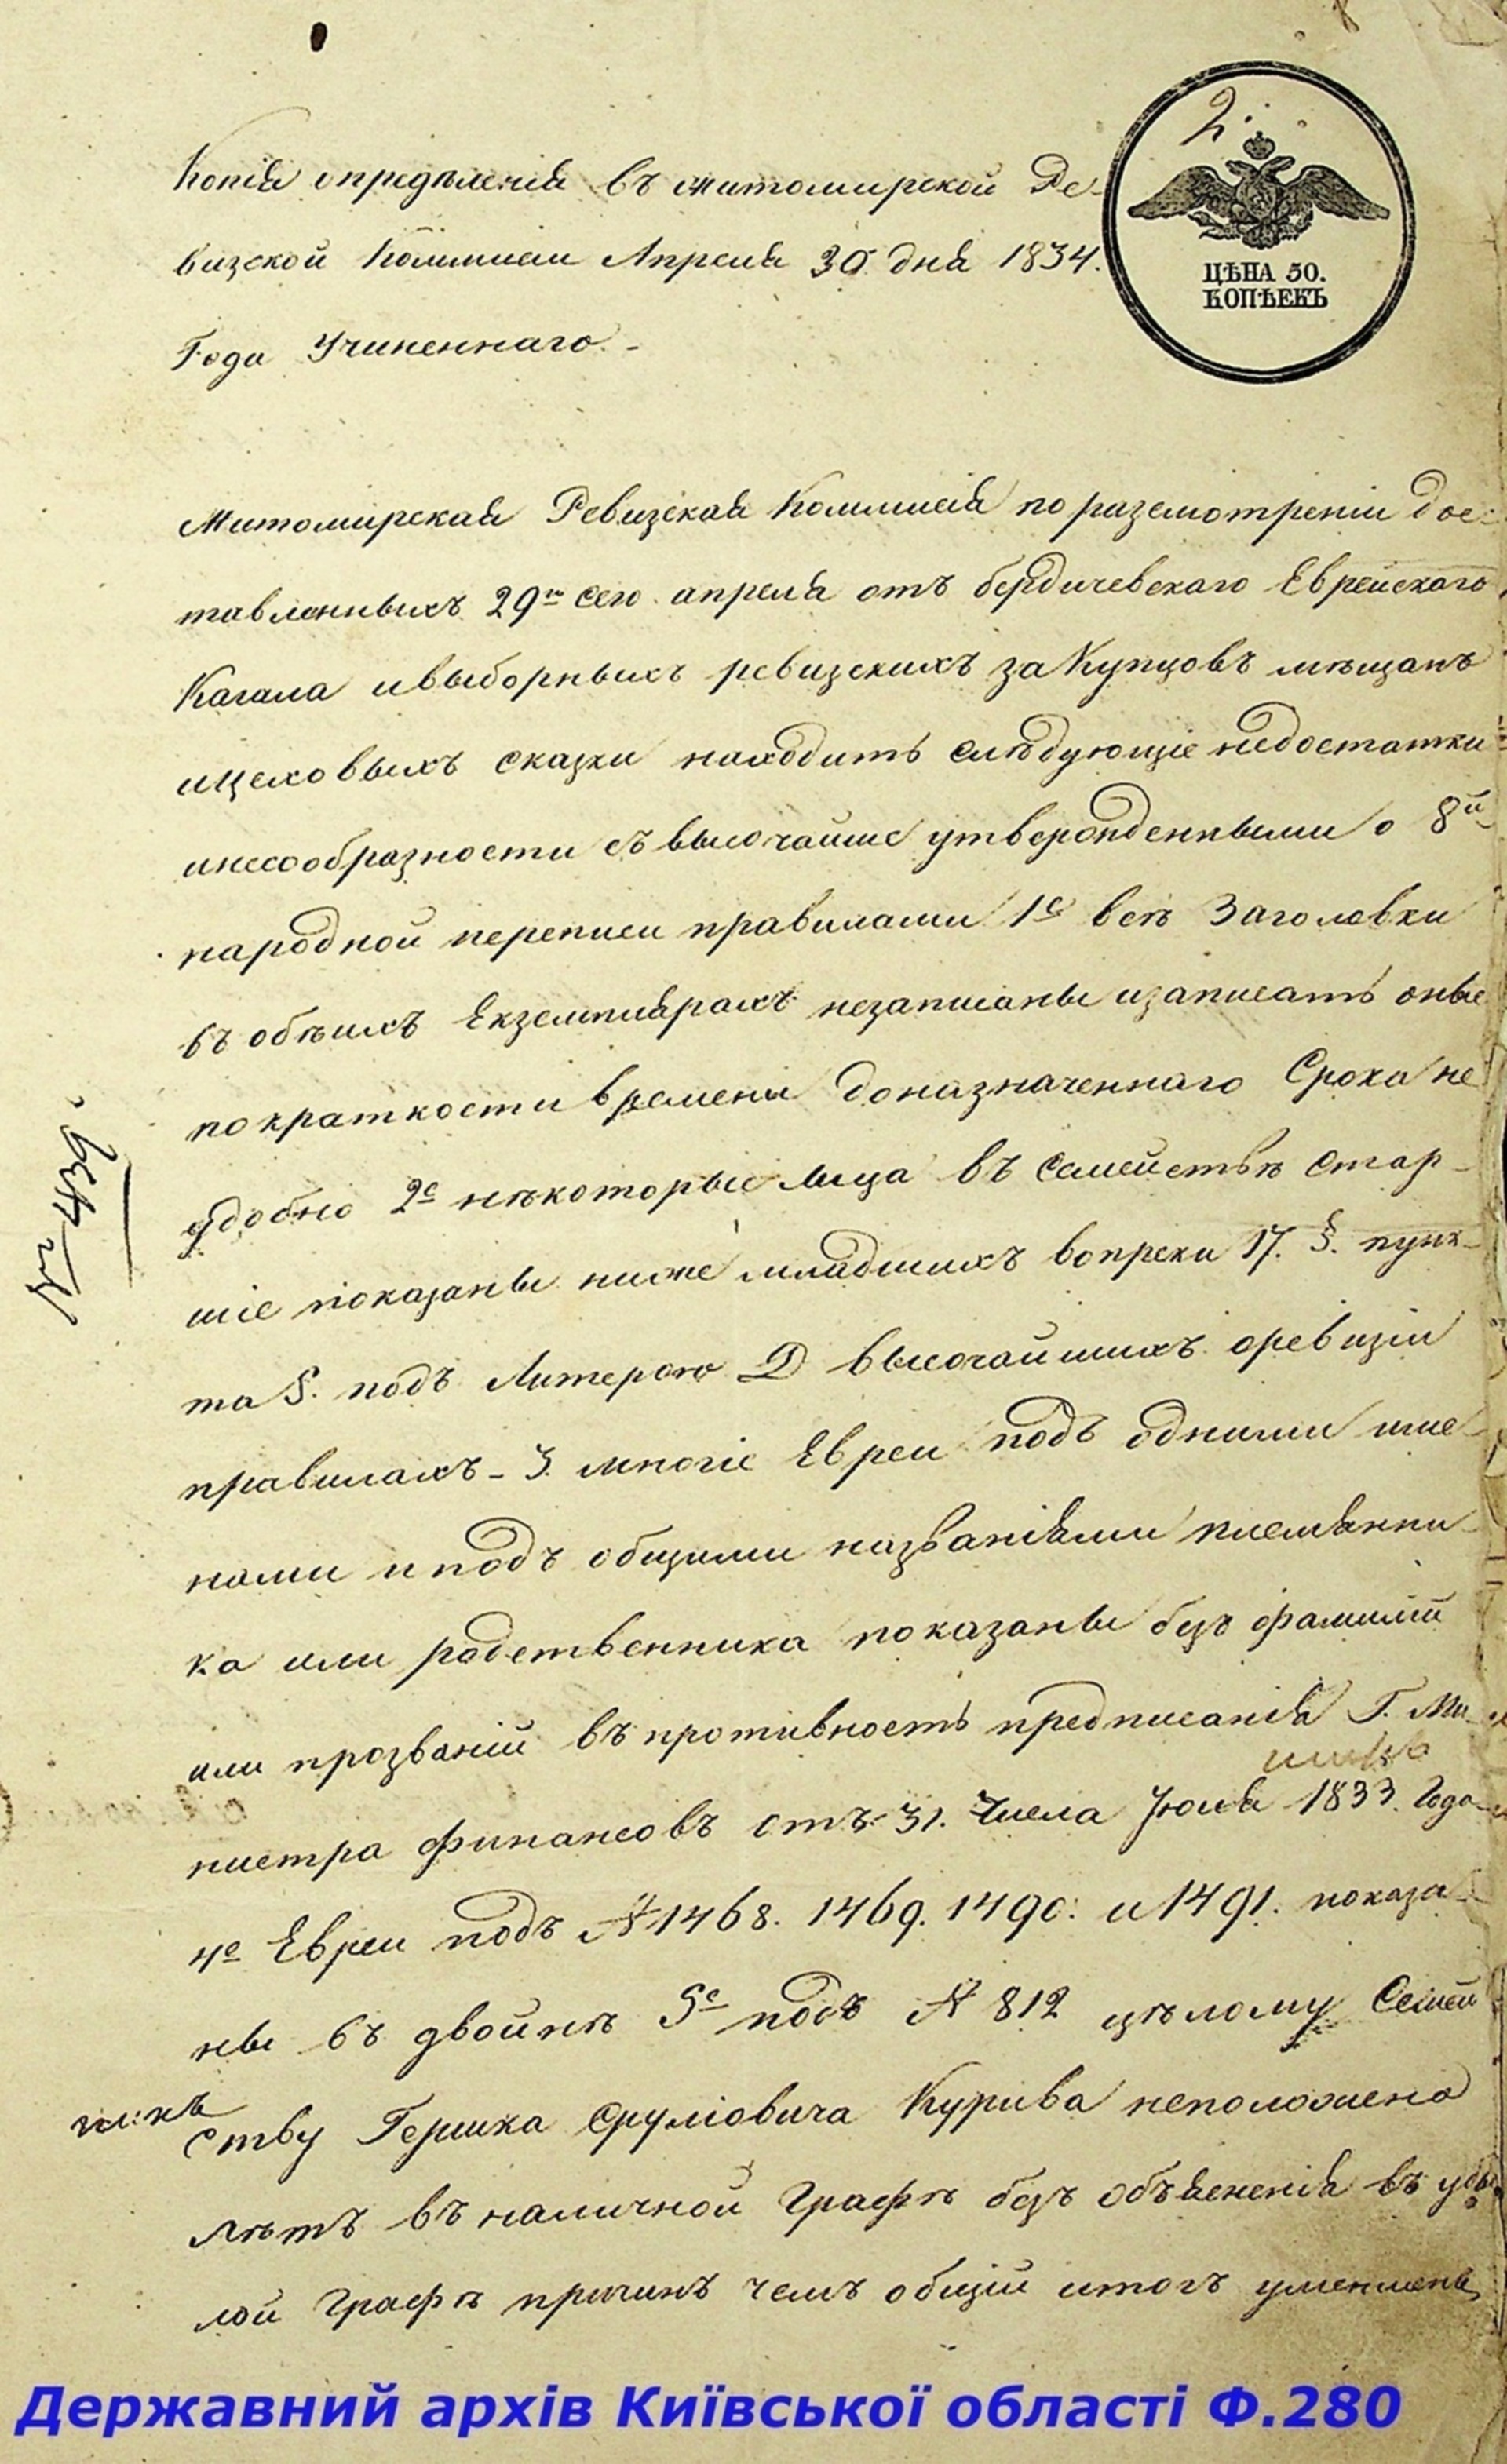 2.
Копія опредѣленія въ житомирской Ре-
ЦѢНА 50.
КОПѢЕКЪ
визской Коммисіи Апреля 30 дня 1834.
Года Учиненнаго. -
Житомирская Ревизская Коммисія по разсмотреніи дос-
тавленныхъ 29го сего апреля отъ бердичевскаго Еврейскаго
Кагала и выборныхъ ревизскихъ за Купцовъ мѣщанъ
и цеховыхъ сказки находитъ слѣдующіе недостатки
и несообразности съ высочайше утвержденными о 8й
народной переписи правилами 1е всѣ Заголовки
въ обѣихъ Екземплярахъ незаписаны и записать оные
по краткости времени до назначеннаго Срока не
удобно 2е нѣкоторые лица въ Семействѣ стар-
шіе показаны ниже младшихъ вопреки 17. §. пунк-
та 5. подъ Литерою Д высочайшихъ о ревизіи
правилахъ - 3. многіе Евреи подъ одними име-
нами и подъ общими названіями племянни-
ка или родственника показаны безъ фамилій
или прозваній въ противность предписанія Г. Ми-
нистра финансовъ отъ 31. Числа Июля 1833. Года
4е Евреи подъ № 1468. 1469. 1490. и 1491. показа-
ны въ двойнѣ 5е подъ № 812 цѣлому Семей-
ству Гершка Срулiовича Курива неположено
лѣтъ въ наличной Графѣ безъ объясненія въ убы-
лой Графѣ причинъ чемъ общій итогъ уменшенъ
Державний архів Київської області Ф.280